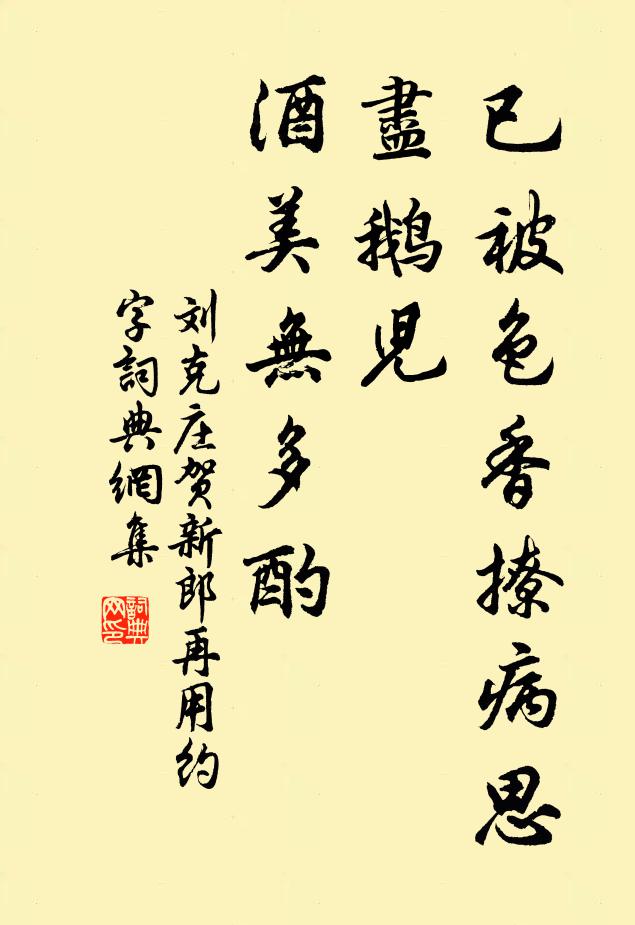 已被色香撩病思
盡鵝児
酒美無多酌
刘克庄贺新郎再用约
字詞典網集
詞典网印